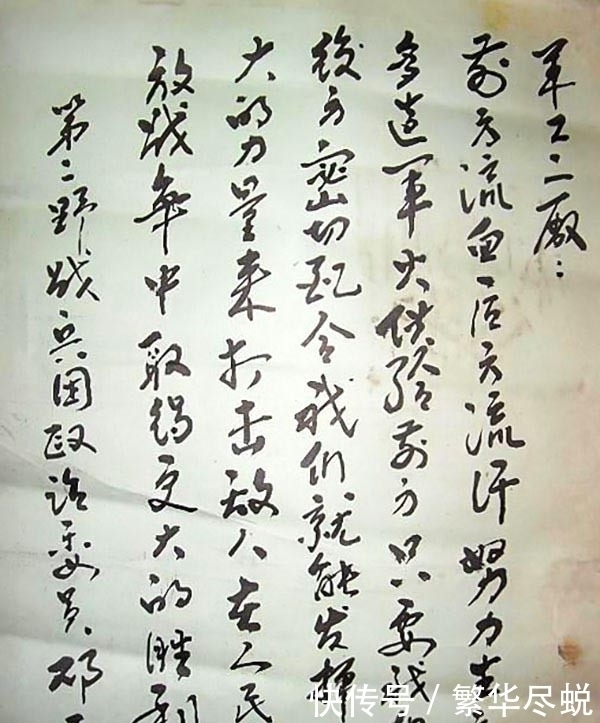 军工二厂：
前方流血后方流汗努力
多造军火供给前方只要我
後方密切配合我们就能发挥
大的力量来打击敌人在人民
放战争中取得更大的胜利
第二野战兵团政治委员邓
快传号／繁华尽蜕